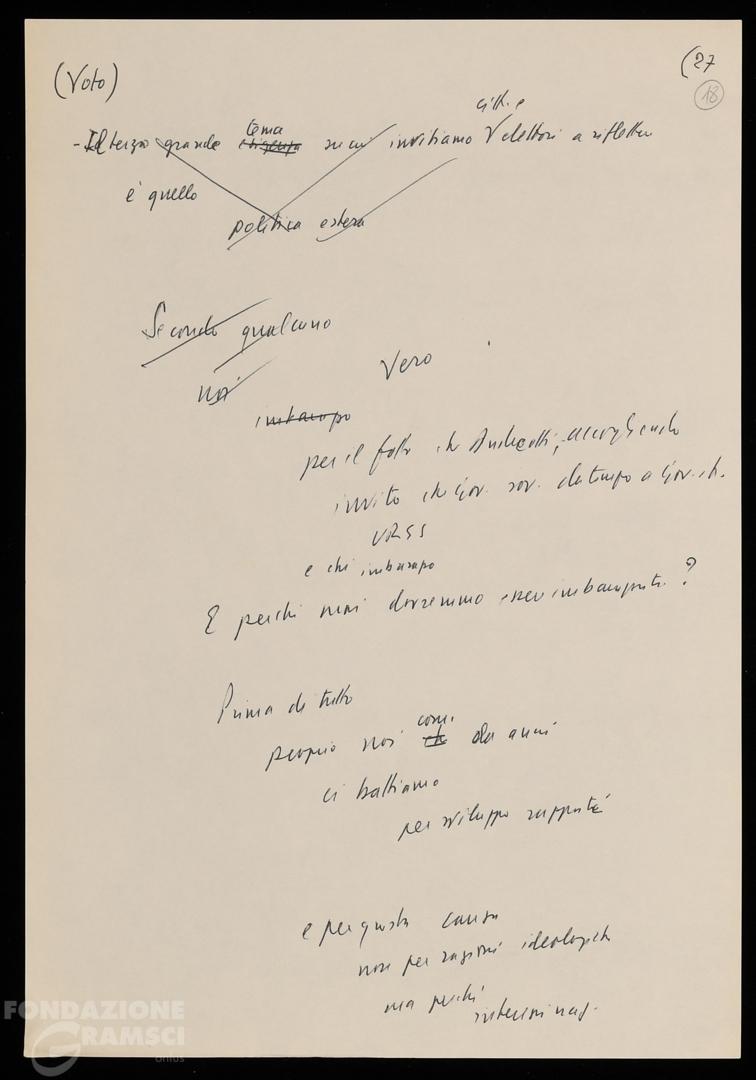 (Voto)
(27
18
- Il terzo grande esigenza tema su cui invitiamo citt. e elettori a riflettere
è quello
politica estera
Secondo qualcuno
noi
Vero
imbarazzo
per il fatto che Andreotti, accogliendo
invito che Gov. sov. da tempo a Gov. it.
URSS
e chi imbarazzo
E perchè mai dovremmo essere imbarazzati?
Prima di tutto
proprio noi che com. da anni
ci battiamo
per sviluppo rapporti
e per questa causa
non per ragioni ideologiche
ma perchè
interessi naz.
FONDAZIONE
GRAMSCI
onlus